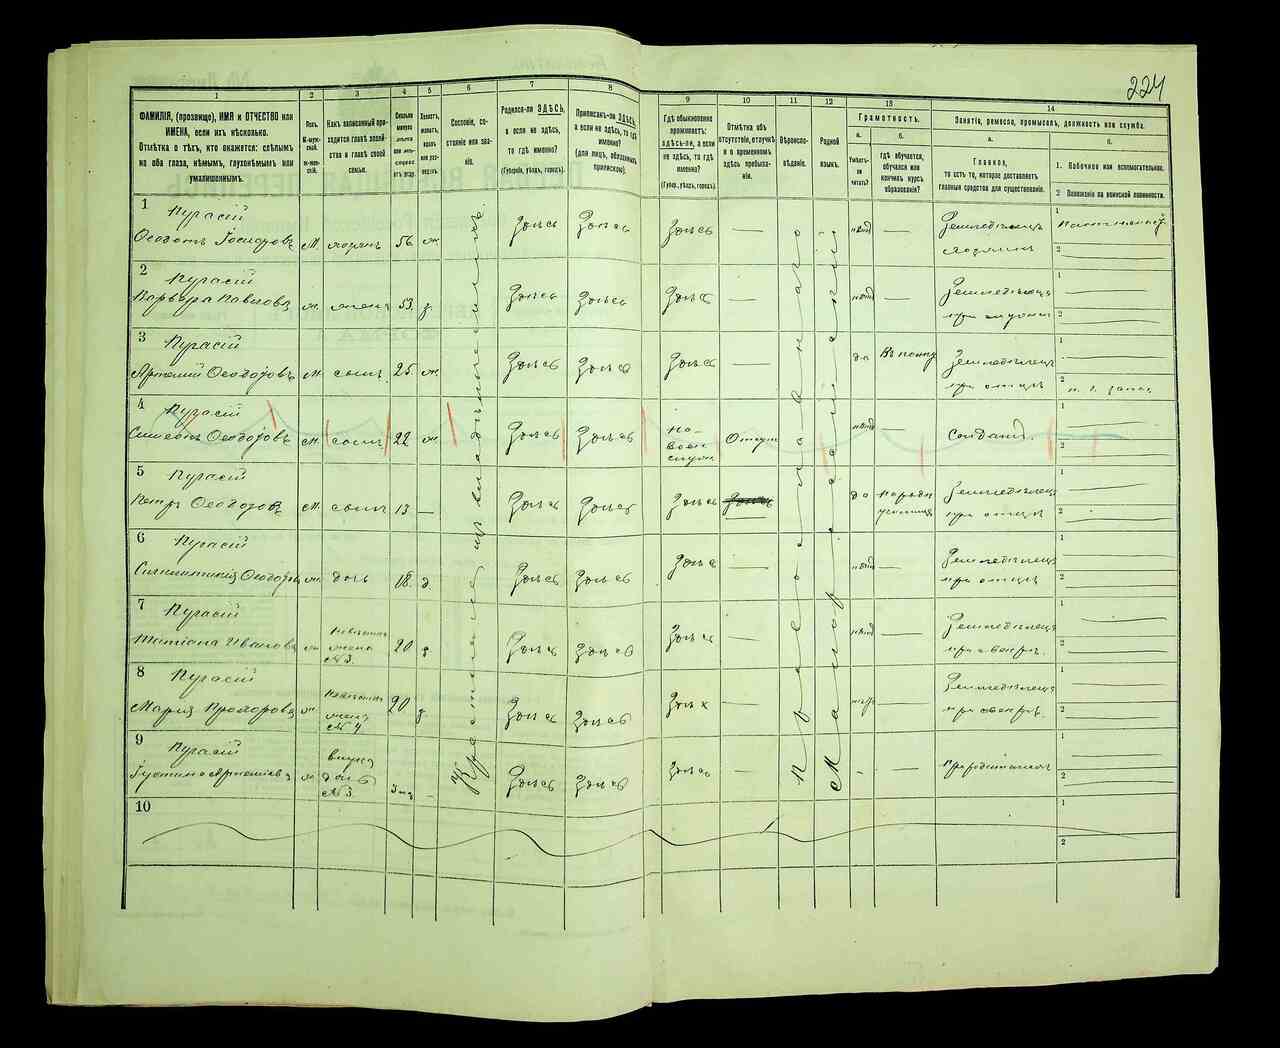 224
1
2
3
4
5
6
7
8
9
10
11
12
13
14
ФАМИЛІЯ, (прозвище), ИМЯ и ОТЧЕСТВО или
ИМЕНА, если ихъ нѣсколько.
Отмѣтка о тѣхъ, кто окажется: слѣпымъ
на оба глаза, нѣмымъ, глухонѣмымъ или
умалишеннымъ.
Полъ.
М-муж-
ской.
Ж-жен-
скій.
Какъ записанный при-
ходится главѣ хозяй-
ства и главѣ своей
семьи.
Сколько
минуло
лѣтъ
Холостъ,
женатъ,
вдовъ
Сословіе, со-
стояніе или зва-
ніе.
Родился-ли ЗДѢСЬ,
а если не здѣсь,
то гдѣ именно?
(Губернія, уѣздъ, городъ).
Приписанъ-ли ЗДѢСЬ,
а если не здѣсь, то гдѣ
именно?
(для лицъ, обязанныхъ
припискою).
Гдѣ обыкновенно
проживаетъ:
здѣсь-ли, а если
не здѣсь, то гдѣ
именно?
(Губер., уѣздъ, городъ).
Отмѣтка объ
отсутствіи, отлучкѣ
и о временномъ
здѣсь пребыва-
ніи.
Вѣроиспо-
вѣданіе.
Родной
языкъ.
Грамотность.
а.
Умѣетъ-
ли
читать?
б.
гдѣ обучается,
обучался или
кончилъ курсъ
образованія?
Занятіе, ремесло, промыселъ, должность или служба.
а.
Главное,
то есть то, которое доставляетъ
главныя средства для существованія.
б.
1. Побочное или вспомогательное.
2. Положеніе по воинской повинности.
1
Пугасій
Ѳеодотъ
м.
хозяинъ
56.
ж.
Здѣсь
Здѣсь
Здѣсь
—
—
Земледѣлецъ
хозяинъ
1
2
2
Пугасій
Варвара Павлова
ж.
жена
53.
з.
Здѣсь
Здѣсь
Здѣсь
—
—
1
2
3
Пугасій
м.
сынъ
25.
ж.
Здѣсь
Здѣсь
Здѣсь
—
да
Земледѣлецъ
при отцѣ
1
2
4
Пугасій
Симеонъ
м.
сынъ
22
ж.
Здѣсь
Здѣсь
на
воен
служ
Отсут
—
Солдатъ.
1
2
5
Пугасій
Петръ
м.
сынъ
13
—
Здѣсь
Здѣсь
Здѣсь
да
народн
училище
Земледѣлецъ
при отцѣ
1
2
6
Пугасій
ж.
дочь
18.
д.
Здѣсь
Здѣсь
Здѣсь
—
—
Земледѣлецъ
при отцѣ
1
2
7
Пугасій
Татіана Иванова
ж
невѣстка
жена
№ 3.
20
з.
Здѣсь
Здѣсь
Здѣсь
—
—
Земледѣлецъ
при свекрѣ.
1
2
8
Пугасій
Марія Прохорова
ж.
невѣстка
жена
№ 4
20
з.
Здѣсь
Здѣсь
Здѣсь
—
—
Земледѣлецъ
при свекрѣ.
1
2
9
Пугасій
ж
внука
дочь
№ 3.
Здѣсь
Здѣсь
Здѣсь
—
—
при родителяхъ
1
2
10
1
2
Крестьяне изъ владѣльческихъ.
Православнаго
Малороссійскій